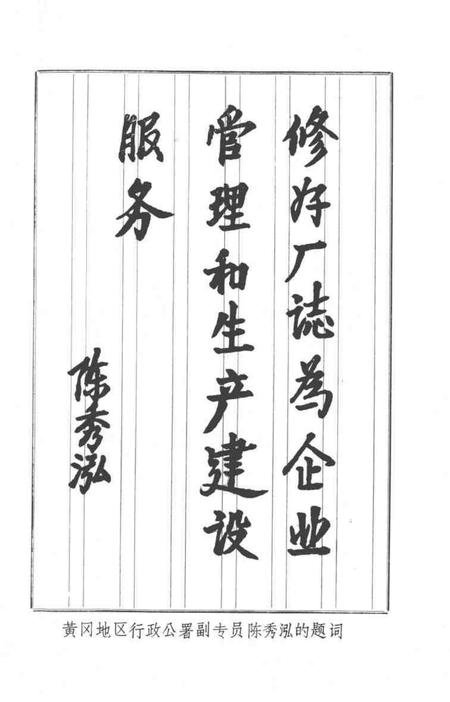 修好厂誌為企业
管理和生产建设
服务
陈秀泓
黄冈地区行政公署副专员陈秀泓的题词